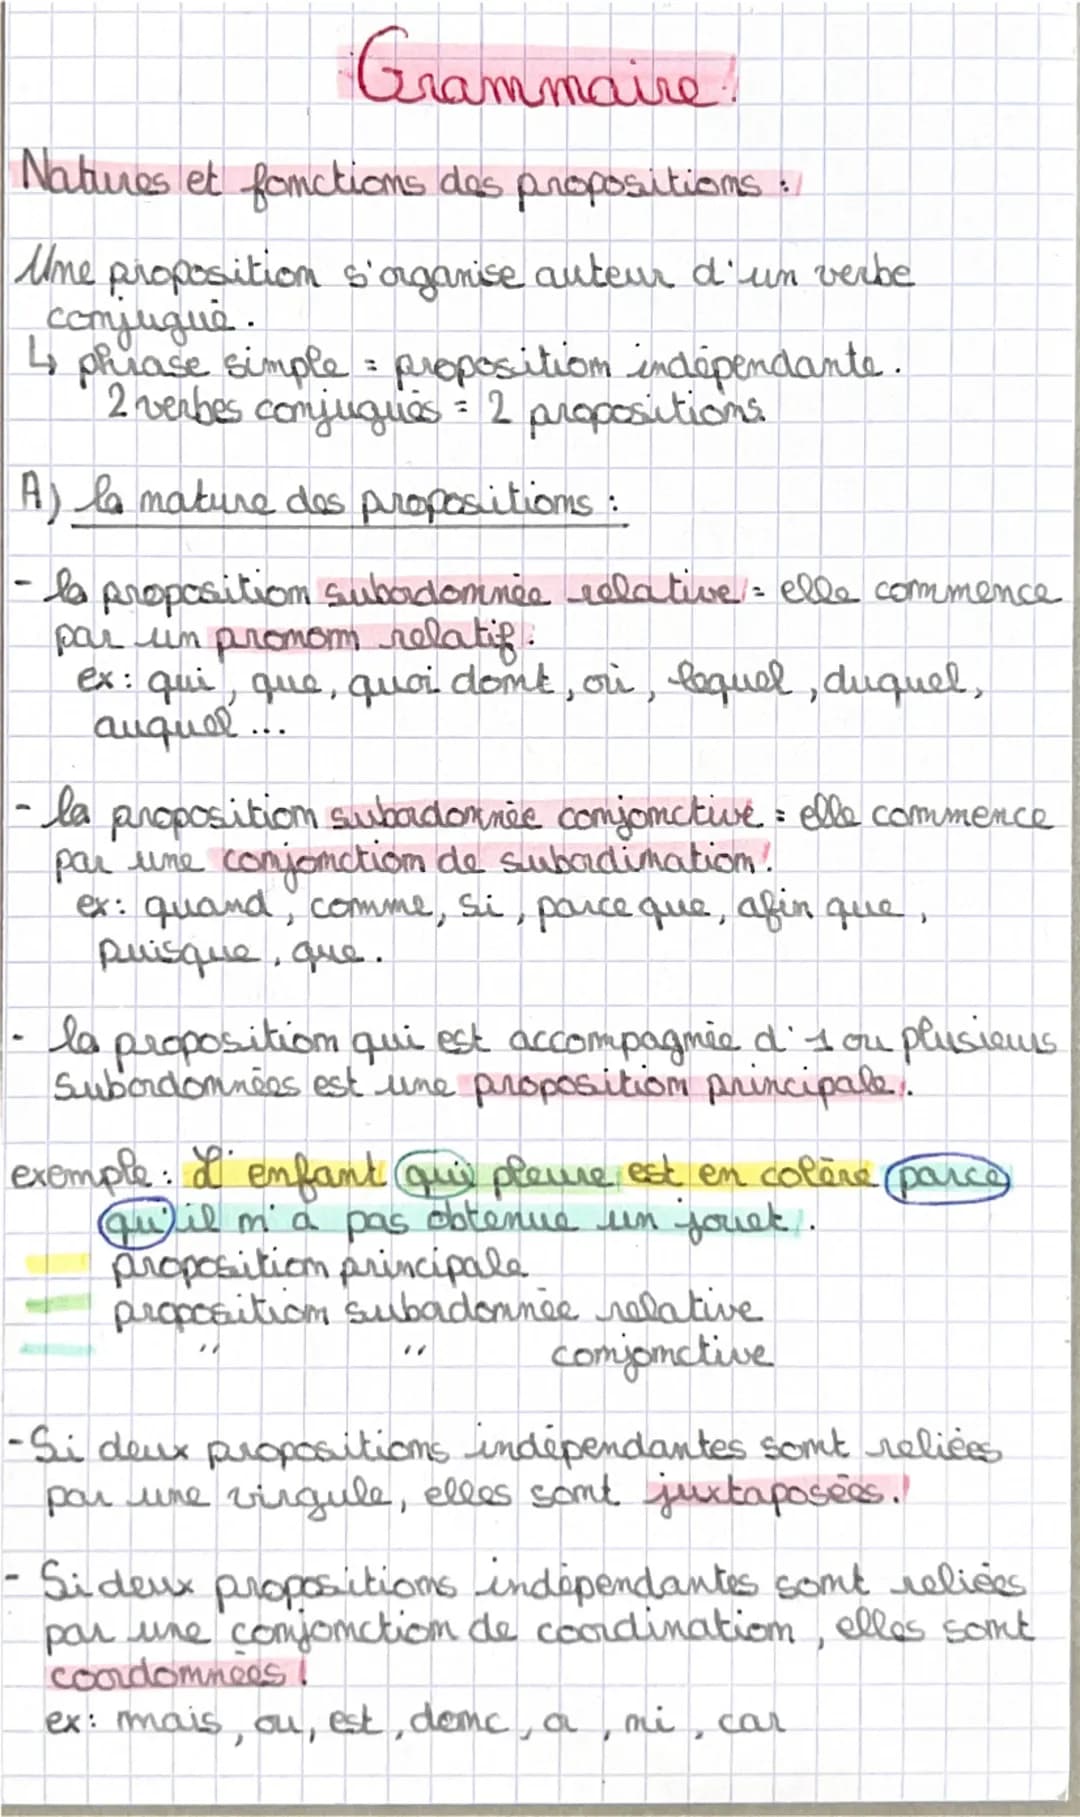 Grammaire
Natures et fonctions des propositions :
Une proposition s'organise auteur d'un verbe
conjugué.
↳ phrase simple = proposition indépendante.
2 verbes conjugués = 2 propositions.
A) la nature des propositions :
- la proposition subordonnée relative = elle commence
par un pronom relatif.
ex : qui, que, quoi dont, où, lequel, duquel,
auquel ...
- la proposition subordonnée conjonctive = elle commence
par une conjonction de subordination.
ex : quand, comme, si, parce que, afin que,
puisque, que.
- la proposition qui est accompagnée d'1 ou plusieurs
subordonnées est une proposition principale.
exemple : L'enfant qui pleure est en colère parce
qu'il n'a pas obtenue un jouet.
proposition principale
proposition subordonnée relative
" " conjonctive
- Si deux propositions indépendantes sont reliées
par une virgule, elles sont juxtaposées.
- Si deux propositions indépendantes sont reliées
par une conjonction de coordination, elles sont
coordonnées
ex : mais, ou, est, donc, or, ni, car